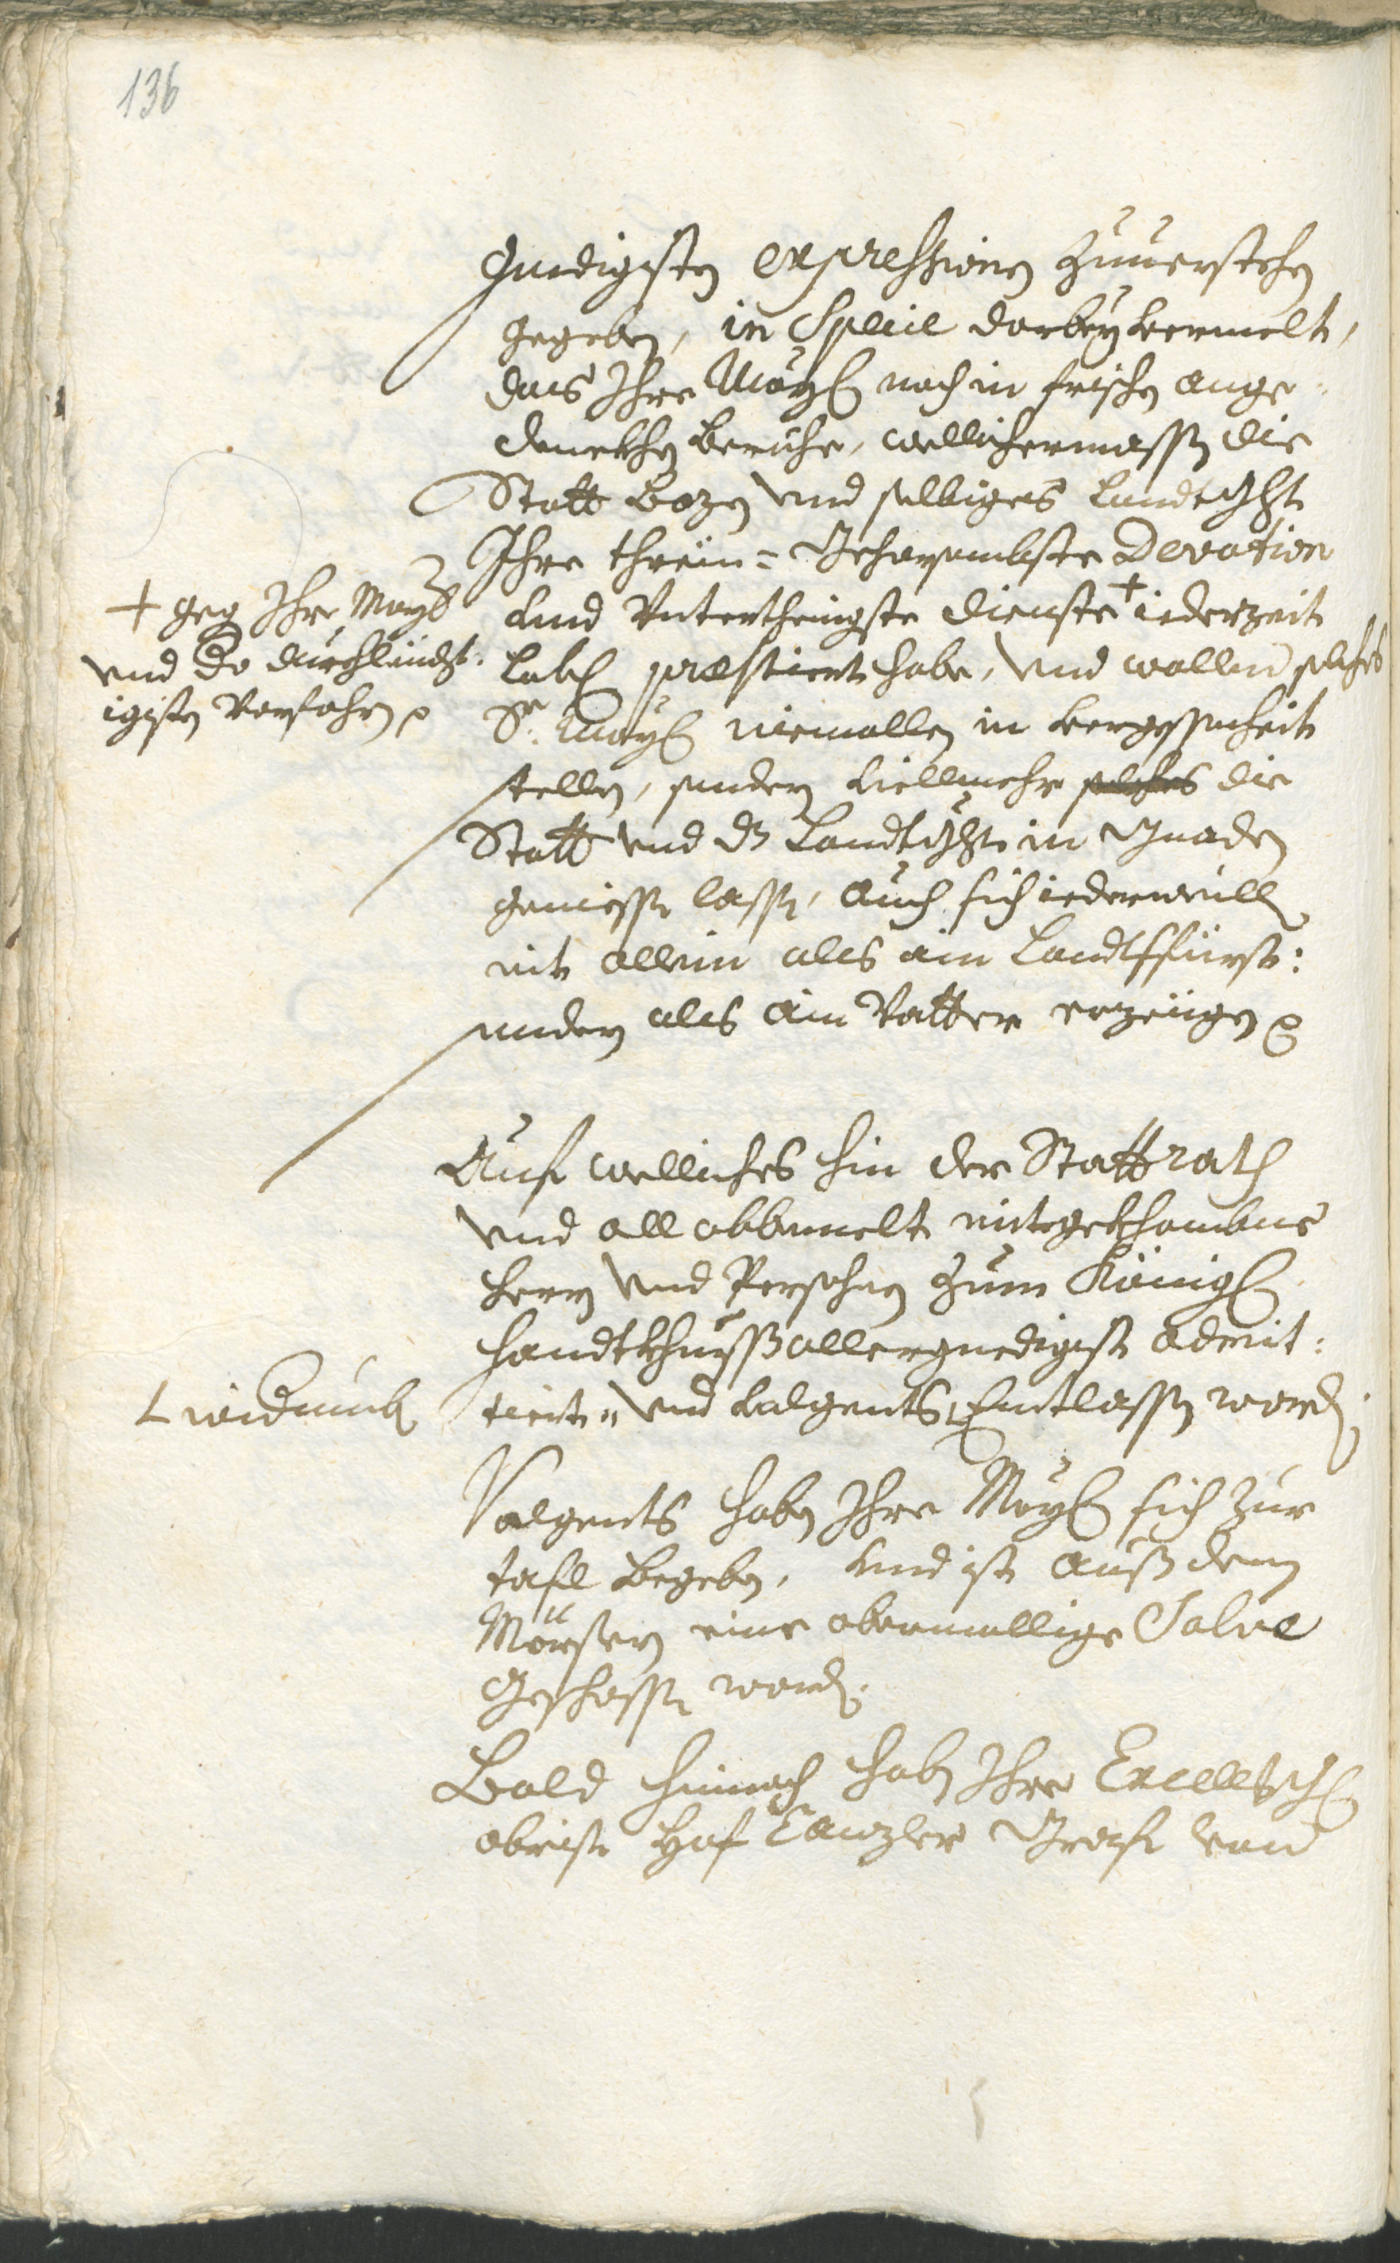 136
gnedigisten expressionen zuuerstehen
gegeben, in Specie darbey vermelt,
dass Ihre Mayl noch in frischen ange-
denckhen beruehe, wellichermassen die
Statt Bozen und selbiges Landtgcht
Ihre threüe- Gehorsambste Devotion
und Unterthenigste dienste + iederzeit
lobl praestiert habe, und wollen solches
Sr. Mayl niemallen in vergessenheit
stellen, sondern villmehr solches die
Statt und ds Landtgcht in Gnaden
geniessen lassen, auch sich iederweill
nit allein als ain Landtsfürst:
sondern als ain Vatter erzeigen
+ geg Ihr Mayl
und Do durchleücht-
igisten Vorfahren
Auf welliches hin der Stattrath
und all obbemelt mitgekhombne
Herrn und Persohnen zum Königl
Handtkhuss allergnedigist admit-
tiert- und volgents Entlassen wordn.
L widerumb
Volgents haben Ihre Mayl sich zur
tafl begeben, und ist auss denen
Mörsern eine abermallige Salve
Geschossen wordn.
Bald hernach haben Ihre Excell
obrist Hof Canzler Graf von